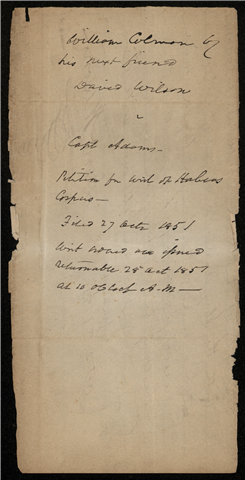 William Colman by
his next friend
David Wilson
v
Capt Adams—
Petition for Writ of Habeas
Corpus—
Filed 27 Octr 1851
Writ issued
returnable 28 Oct 1851
at 10 oClock A.M—